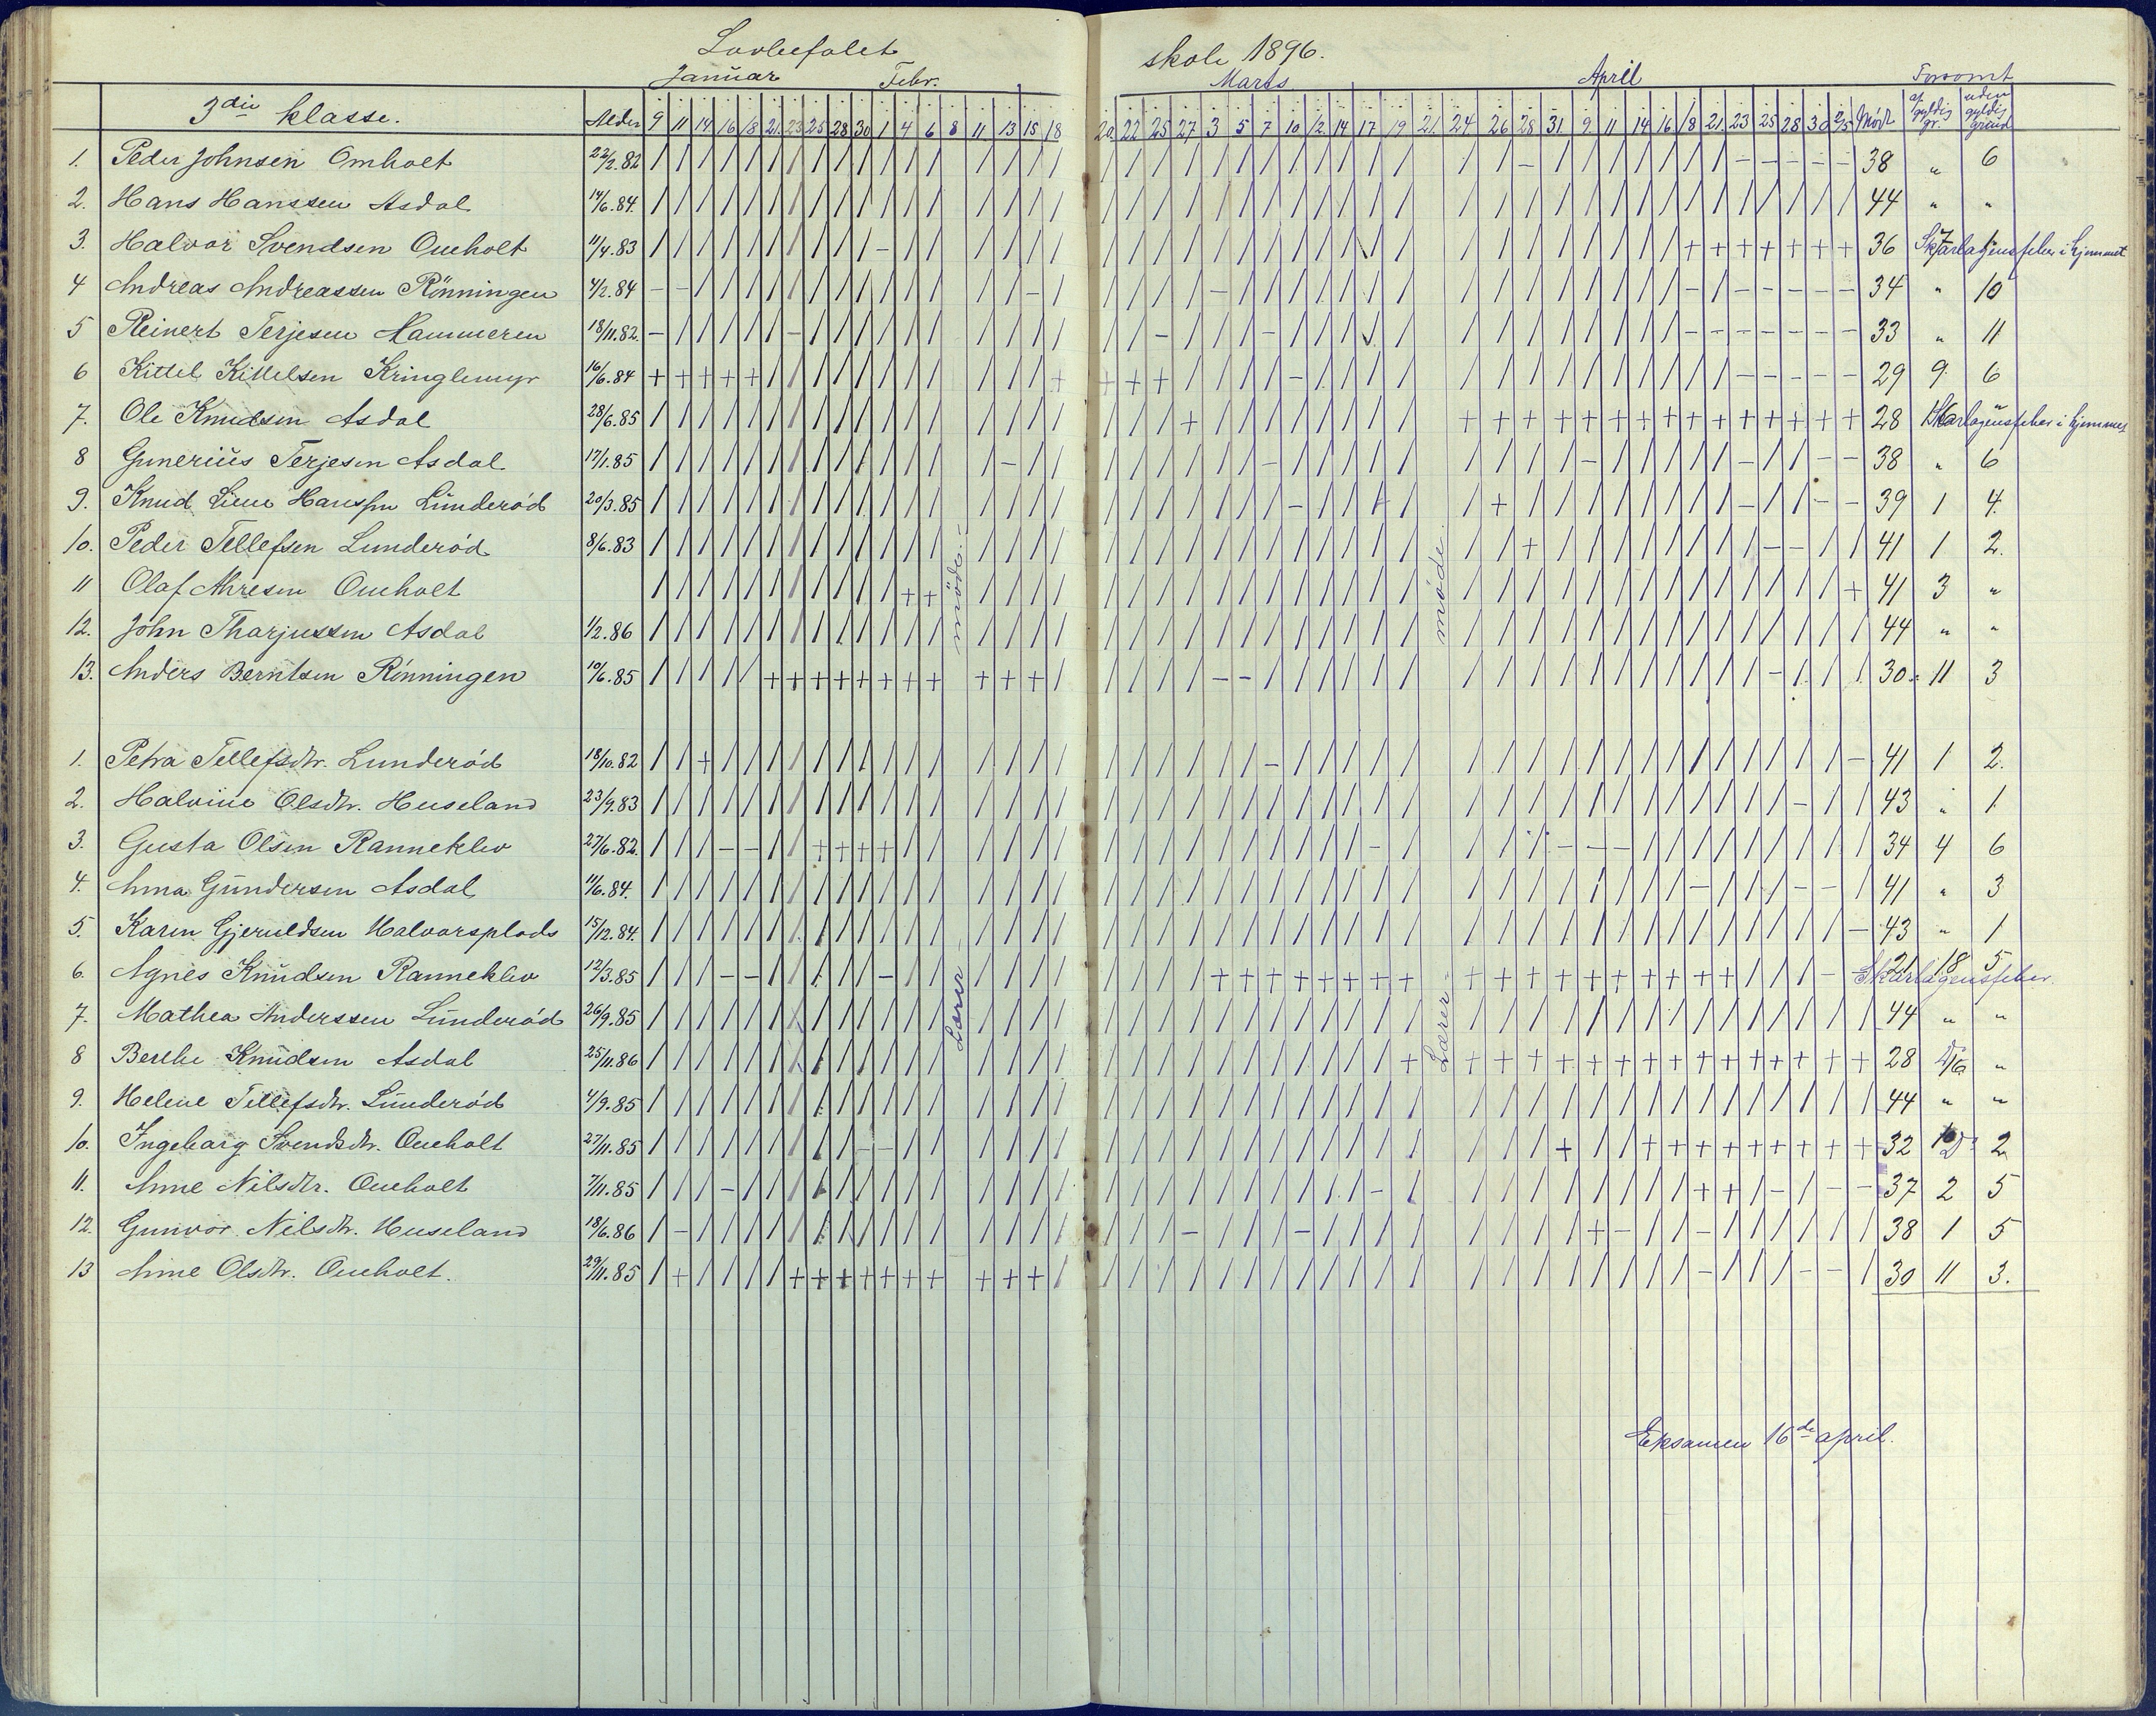 Lovbefalet skole 1896.
Januar Febr. Marts April Forsømt
3die klasse. Alder 9 11 14 16 18 21 23 25 28 30 1 4 6 8 11 13 15 18 20 22 25 27 3 5 7 10 12 14 17 19 21 24 26 28 31 9 11 14 16 18 21 23 25 28 30 2/5 Mødt af gyldig gr. uden gyldig grund
1. Peder Johnsen Omholt 22/2.82 38 " 6
2. Hans Hanssen Asdal 14/6.84. 44 " "
3. Halvor Svendsen Oueholt 11/4.83 36 7 1 Skarlagensfeber i hjemmet
4 Andreas Andreassen Rönningen 4/2.84 34 " 10
5 Reinert Terjesen Hammeren 18/11.82. 33 " 11
6 Kittel Kittelsen Kringlemyr 16/6.84 29 9. 6
7. Ole Knudsen Asdal 28/6.85 28 16 " Skarlagensfeber i hjemmet
8 Gunerius Terjesen Asdal 17/1.85 38 " 6
9. Knud Liene Hanssen Lunderød 20/3.85 39 1 4.
10. Peder Tellefsen Lunderød 8/6.83 41 1 2.
11 Olaf Ahresen Oueholt 41 3 "
12. John Tharjussen Asdal 1/2.86 44 " "
13. Anders Berntsen Rønningen 10/6.85 30 11 3
1. Petra Tellefsdtr. Lunderød 18/10.82 41 1 2.
2. Halvine Olsdtr. Huseland 23/9.83 43 " 1
3. Gusta Olsen Ranneklev 27/6.82. 34 4 6
4. Anna Gundersen Asdal 11/6.84. 41 " 3
5. Karen Gjeruldsen Halvorsplads 15/12.84. 43 " 1
6. Agnes Knudsen Ranneklev 12/3.85 21 18 5 Skarlagensfeber
7. Mathea Anderssen Lunderød 26/9.85 44 " "
8 Berthe Knudsen Asdal 25/11.86 28 16 "
9. Helene Tellefsdtr. Lunderød 4/9.85 44 " "
10. Ingeborg Svendsdtr. Oueholt 27/11.85 32 10 2
11. Anne Nilsdtr. Oueholt 7/11.85 37 2 5
12. Gunvor Nilsdtr. Huseland 18/6.86 38 1 5
13 Anne Olsdtr. Oueholt. 29/11.85 30 11 3.
Lærermöde.
Lærermøde.
Eksamen 16de april.